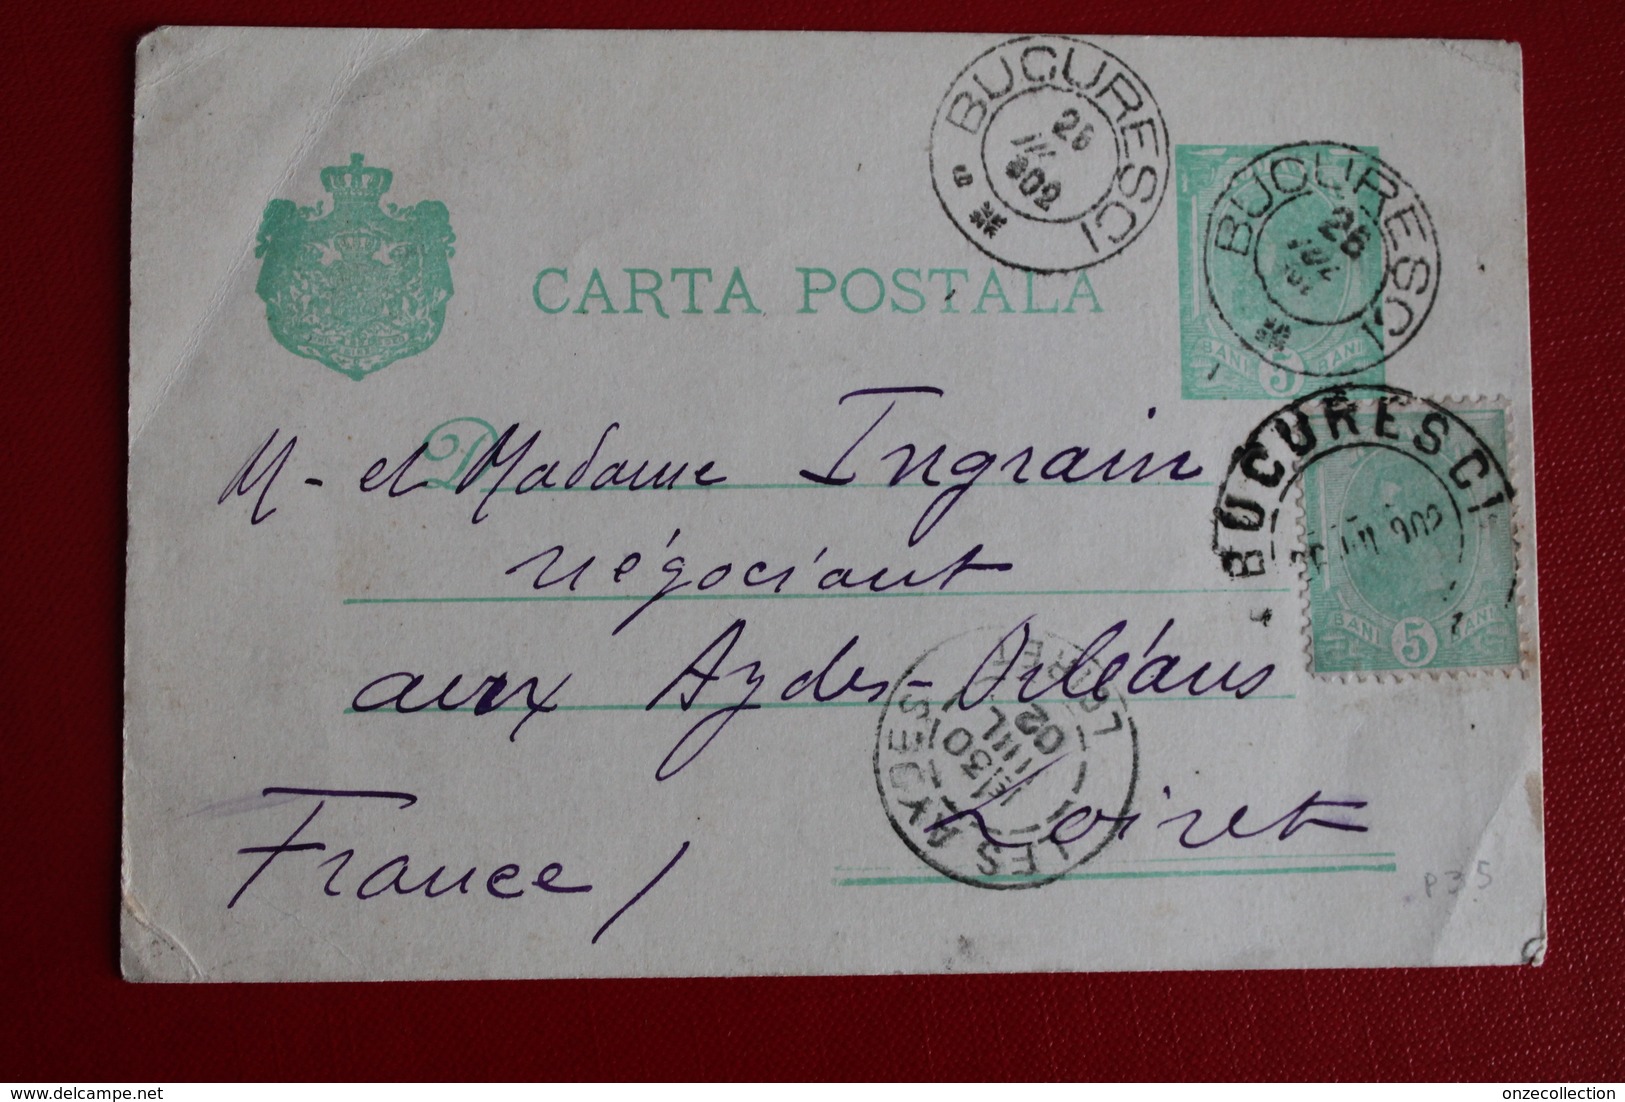 BUCURESCI
26
IUL
902
BUCURESCI
26
IUL
CARTA POSTALA
BANI 5 BANI
D
M. et Madame Ingrain
négociant
aux Aydes-Orléans
Loiret
France
BUCURESCI
IUL 902
BANI 5 BANI
LES AYDES
LOIRET
30
JUIL
02
P315
onzecollection